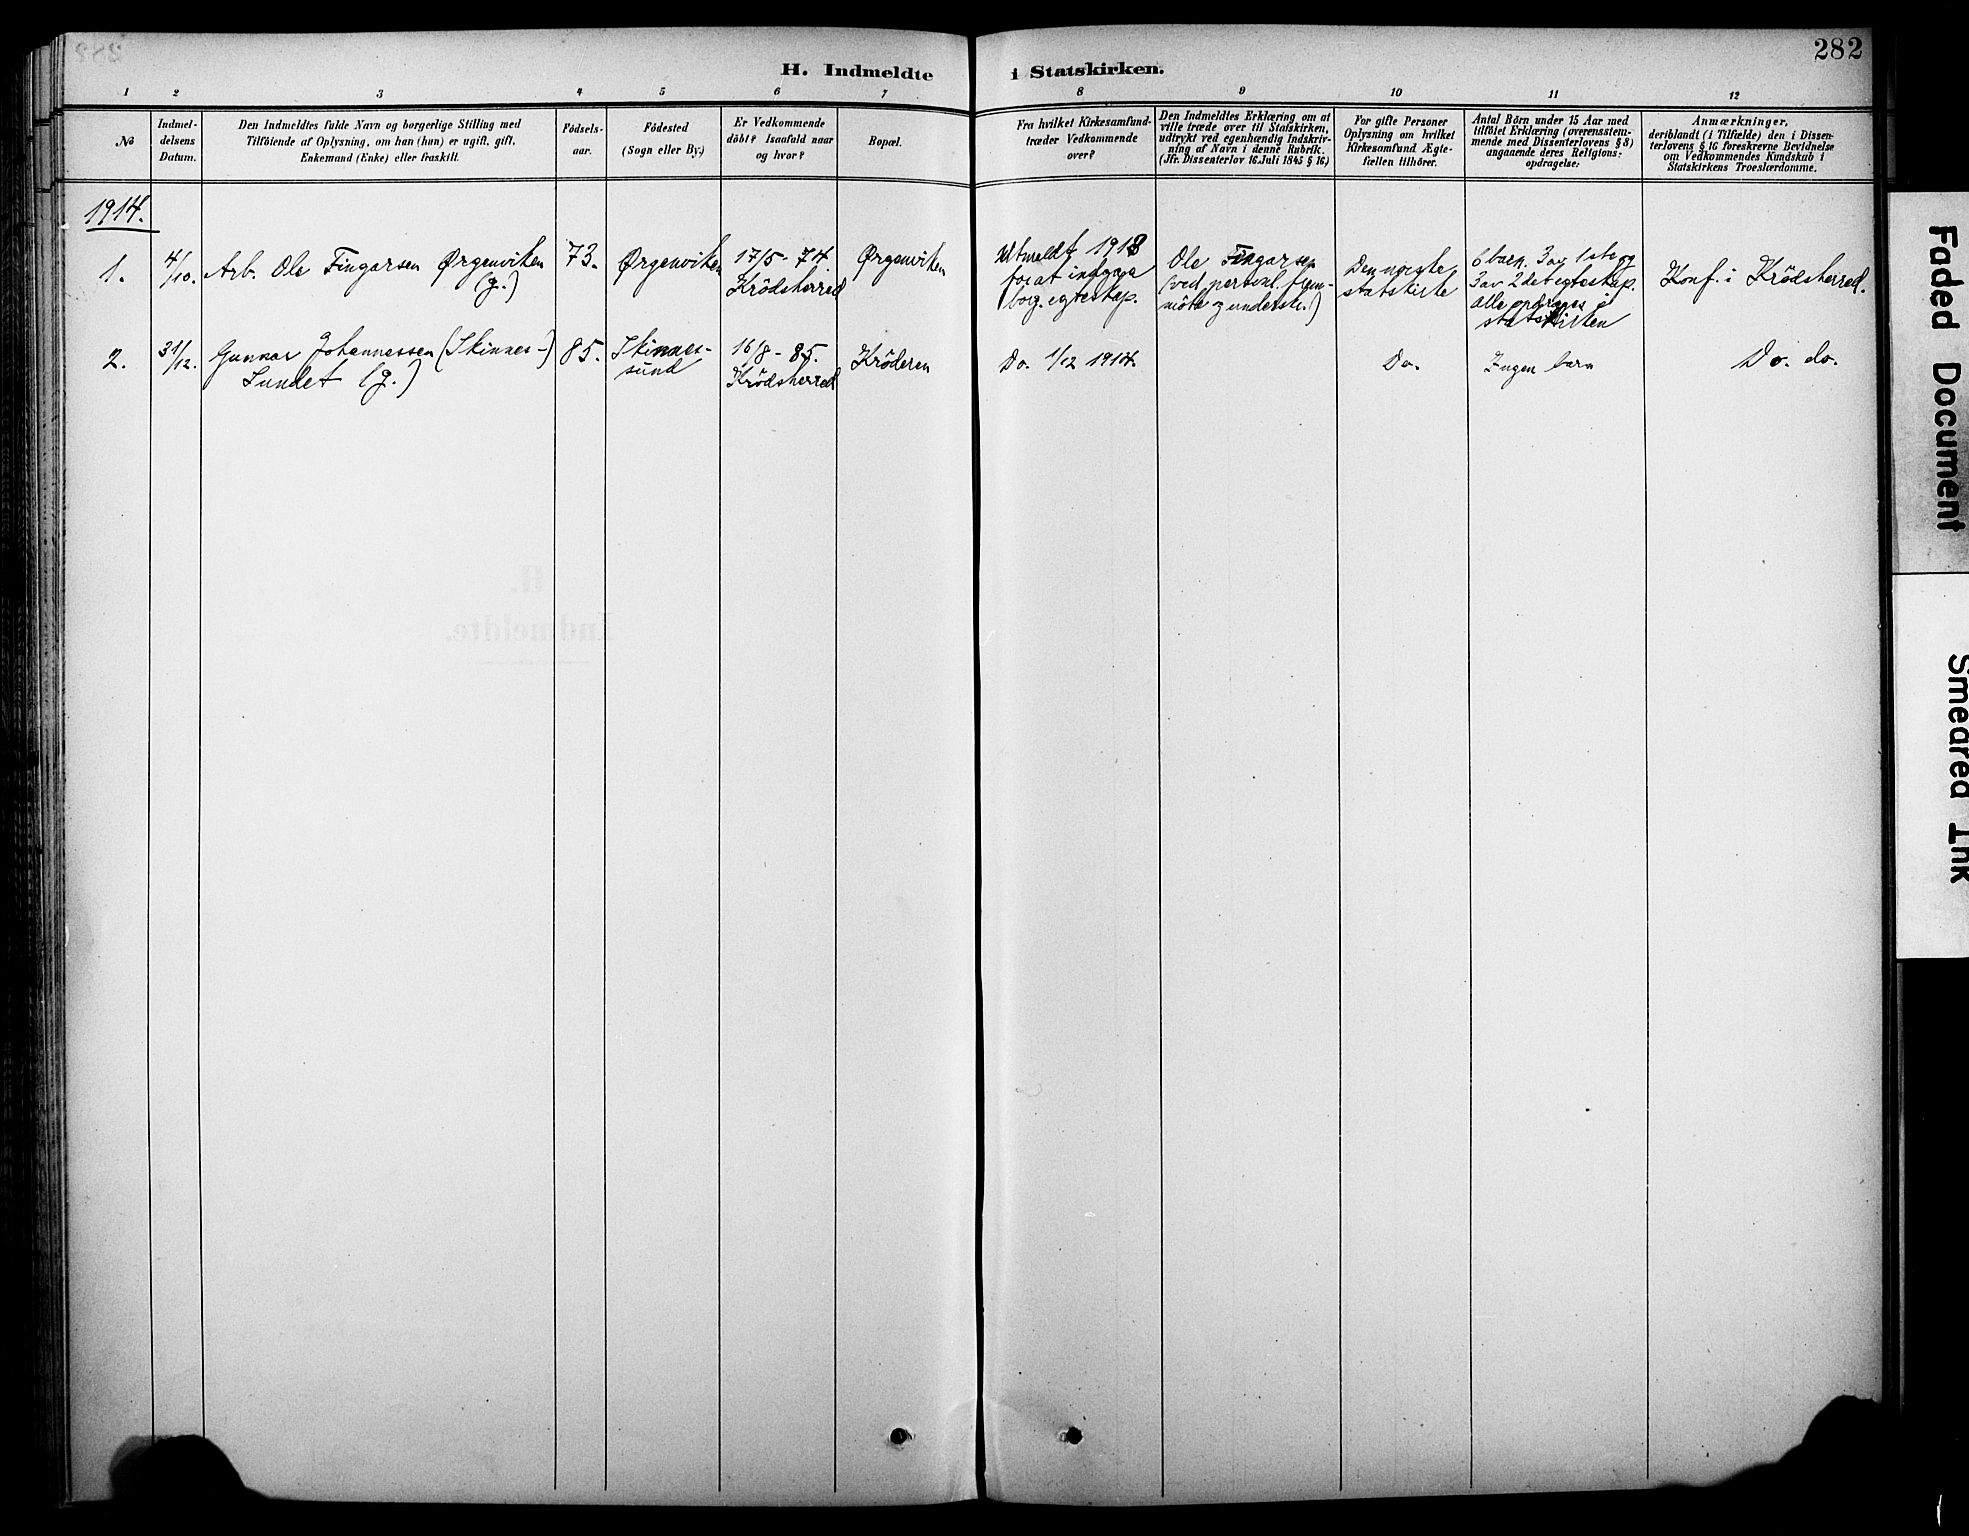 282
H. Indmeldte i Statskirken.
1 2 3 4 5 6 7 8 9 10 11 12
No
Indmel-
delsens
Datum.
Den Indmeldtes fulde Navn og borgerlige Stilling med
Tilföiende af Oplysning, om han (hun) er ugift, gift,
Enkemand (Enke) eller fraskilt.
Födsels-
aar.
Födested
(Sogn eller By.)
Er Vedkommende
döbt? Isaafald naar
og hvor?
Bopæl.
Fra hvilket Kirkesamfund
træder Vedkommende
over?
Den Indmeldtes Erklæring om at
ville træde over til Statskirken,
udtrykt ved egenhændig Indskriv-
ning af Navn i denne Rubrik.
(Jfr. Dissenterlov 16 Juli 1845 § 16)
For gifte Personer
Oplysning om hvilket
Kirkesamfund Ægte-
fællen tilhörer.
Antal Börn under 15 Aar med
tilföiet Erklæring (overensstem-
mende med Dissenterlovens § 8)
angaaende deres Religions-
opdragelse:
Anmærkninger,
deriblandt (i Tilfælde) den i Dissen-
terlovens § 16 foreskrevne Bevidnelse
om Vedkommendes Kundskab i
Statskirkens Troeslærdomme.
1914.
1.
4/10.
Arb. Ole Fingarsen Ørgenviken
(g.)
73.
Ørgenviken
17/5 - 74.
Krödsherred
Ørgenviken
Utmeldt 1913
for at indgaa
borg. egteskap.
Ole Fingarsen
(ved personl. frem-
möte og underskr.)
Den norske
statskirke
6 barn. 3 av 1ste og
3 av 2det egteskap.
alle opdrages i
statskirken
Konf. i Krödsherred.
2.
31/12.
Gunnar Johannessen (Skinnes-)
Sundet (g.)
85.
Skinnes-
sund
16/8 - 85.
Krödsherred
Kröderen
Do. 1/12 1914.
Do.
Ingen barn
Do. do.
H.
Indmeldte.
Faded Document
Smeared Ink